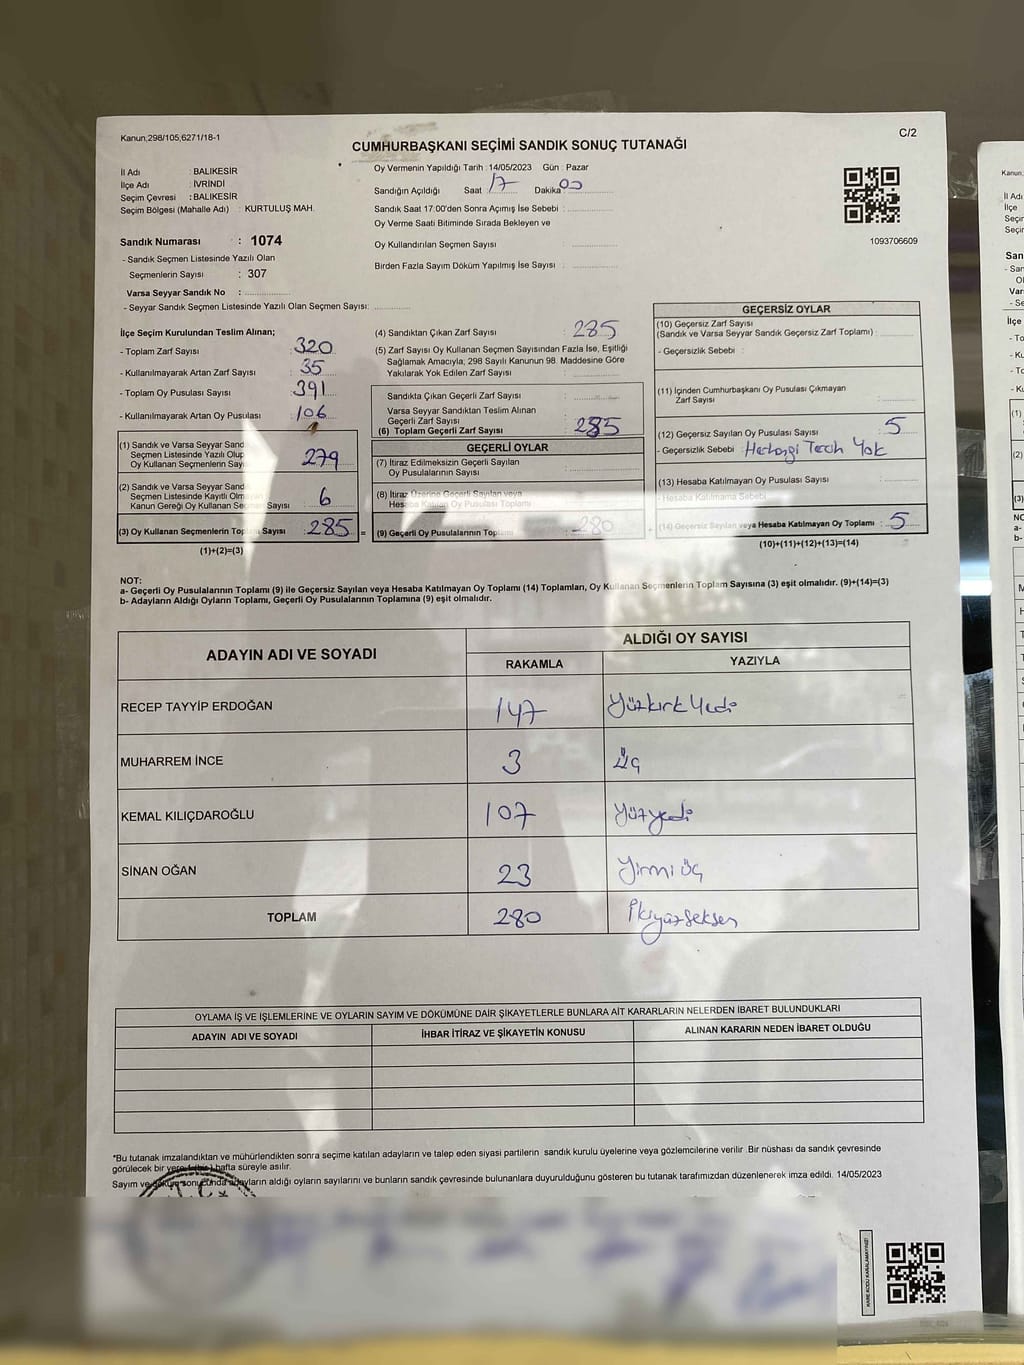 Kanun;298/105;6271/18-1
C/2
CUMHURBAŞKANI SEÇİMİ SANDIK SONUÇ TUTANAĞI
İl Adı : BALIKESİR
İlçe Adı : İVRİNDİ
Seçim Çevresi : BALIKESİR
Seçim Bölgesi (Mahalle Adı) : KURTULUŞ MAH.
Oy Vermenin Yapıldığı Tarih :14/05/2023 Gün : Pazar
Sandığın Açıldığı Saat :17 Dakika 00
Sandık Saat 17:00'den Sonra Açımış İse Sebebi :
Oy Verme Saati Bitiminde Sırada Bekleyen ve
Oy Kullandırılan Seçmen Sayısı :
Birden Fazla Sayım Döküm Yapılmış İse Sayısı :
1093706609
Sandık Numarası : 1074
- Sandık Seçmen Listesinde Yazılı Olan
Seçmenlerin Sayısı : 307
Varsa Seyyar Sandık No :
- Seyyar Sandık Seçmen Listesinde Yazılı Olan Seçmen Sayısı:
İlçe Seçim Kurulundan Teslim Alınan;
- Toplam Zarf Sayısı : 320
- Kullanılmayarak Artan Zarf Sayısı : 35
- Toplam Oy Pusulası Sayısı : 391
- Kullanılmayarak Artan Oy Pusulası : 106
(1) Sandık ve Varsa Seyyar Sand
Seçmen Listesinde Yazılı Olup
Oy Kullanan Seçmenlerin Sayı 279
(2) Sandık ve Varsa Seyyar Sand
Seçmen Listesinde Kayıtlı Olma
Kanun Gereği Oy Kullanan Seçmen Sayısı 6
(3) Oy Kullanan Seçmenlerin Toplam Sayısı :285 =
(1)+(2)=(3)
(4) Sandıktan Çıkan Zarf Sayısı : 285
(5) Zarf Sayısı Oy Kullanan Seçmen Sayısından Fazla İse, Eşitliği
Sağlamak Amacıyla; 298 Sayılı Kanunun 98. Maddesine Göre
Yakılarak Yok Edilen Zarf Sayısı :
Sandıkta Çıkan Geçerli Zarf Sayısı :
Varsa Seyyar Sandıktan Teslim Alınan
Geçerli Zarf Sayısı :
(6) Toplam Geçerli Zarf Sayısı :285
GEÇERLİ OYLAR
(7) İtiraz Edilmeksizin Geçerli Sayılan
Oy Pusulalarının Sayısı :
(8) İtiraz Üzerine Geçerli Sayılan veya
Hesaba Katılan Oy Pusulası Toplamı
(9) Geçerli Oy Pusulalarının Toplamı :280 +
GEÇERSİZ OYLAR
(10) Geçersiz Zarf Sayısı
(Sandık ve Varsa Seyyar Sandık Geçersiz Zarf Toplamı) :
- Geçersizlik Sebebi :
(11) İçinden Cumhurbaşkanı Oy Pusulası Çıkmayan
Zarf Sayısı :
(12) Geçersiz Sayılan Oy Pusulası Sayısı : 5
- Geçersizlik Sebebi : Herhangi Tercih Yok
(13) Hesaba Katılmayan Oy Pusulası Sayısı :
- Hesaba Katılmama Sebebi
(14) Geçersiz Sayılan veya Hesaba Katılmayan Oy Toplamı : 5
(10)+(11)+(12)+(13)=(14)
NOT:
a- Geçerli Oy Pusulalarının Toplamı (9) ile Geçersiz Sayılan veya Hesaba Katılmayan Oy Toplamı (14) Toplamları, Oy Kullanan Seçmenlerin Toplam Sayısına (3) eşit olmalıdır. (9)+(14)=(3)
b- Adayların Aldığı Oyların Toplamı, Geçerli Oy Pusulalarının Toplamına (9) eşit olmalıdır.
ADAYIN ADI VE SOYADI
ALDIĞI OY SAYISI
RAKAMLA YAZIYLA
RECEP TAYYİP ERDOĞAN 147 Yüzkırk Yedi
MUHARREM İNCE 3 Üç
KEMAL KILIÇDAROĞLU 107 Yüzyedi
SİNAN OĞAN 23 Yirmi üç
TOPLAM 280 İkiyüzseksen
OYLAMA İŞ VE İŞLEMLERİNE VE OYLARIN SAYIM VE DÖKÜMÜNE DAİR ŞİKAYETLERLE BUNLARA AİT KARARLARIN NELERDEN İBARET BULUNDUKLARI
ADAYIN ADI VE SOYADI İHBAR İTİRAZ VE ŞİKAYETİN KONUSU ALINAN KARARIN NEDEN İBARET OLDUĞU
*Bu tutanak imzalandıktan ve mühürlendikten sonra seçime katılan adayların ve talep eden siyasi partilerin sandık kurulu üyelerine veya gözlemcilerine verilir .Bir nüshası da sandık çevresinde
görülecek bir yere 1 (bir) hafta süreyle asılır.
Sayım ve döküm sonucunda adayların aldığı oyların sayılarını ve bunların sandık çevresinde bulunanlara duyurulduğunu gösteren bu tutanak tarafımızdan düzenlenerek imza edildi. 14/05/2023
T.C.
KARE KODU KARALAMAYINIZ!